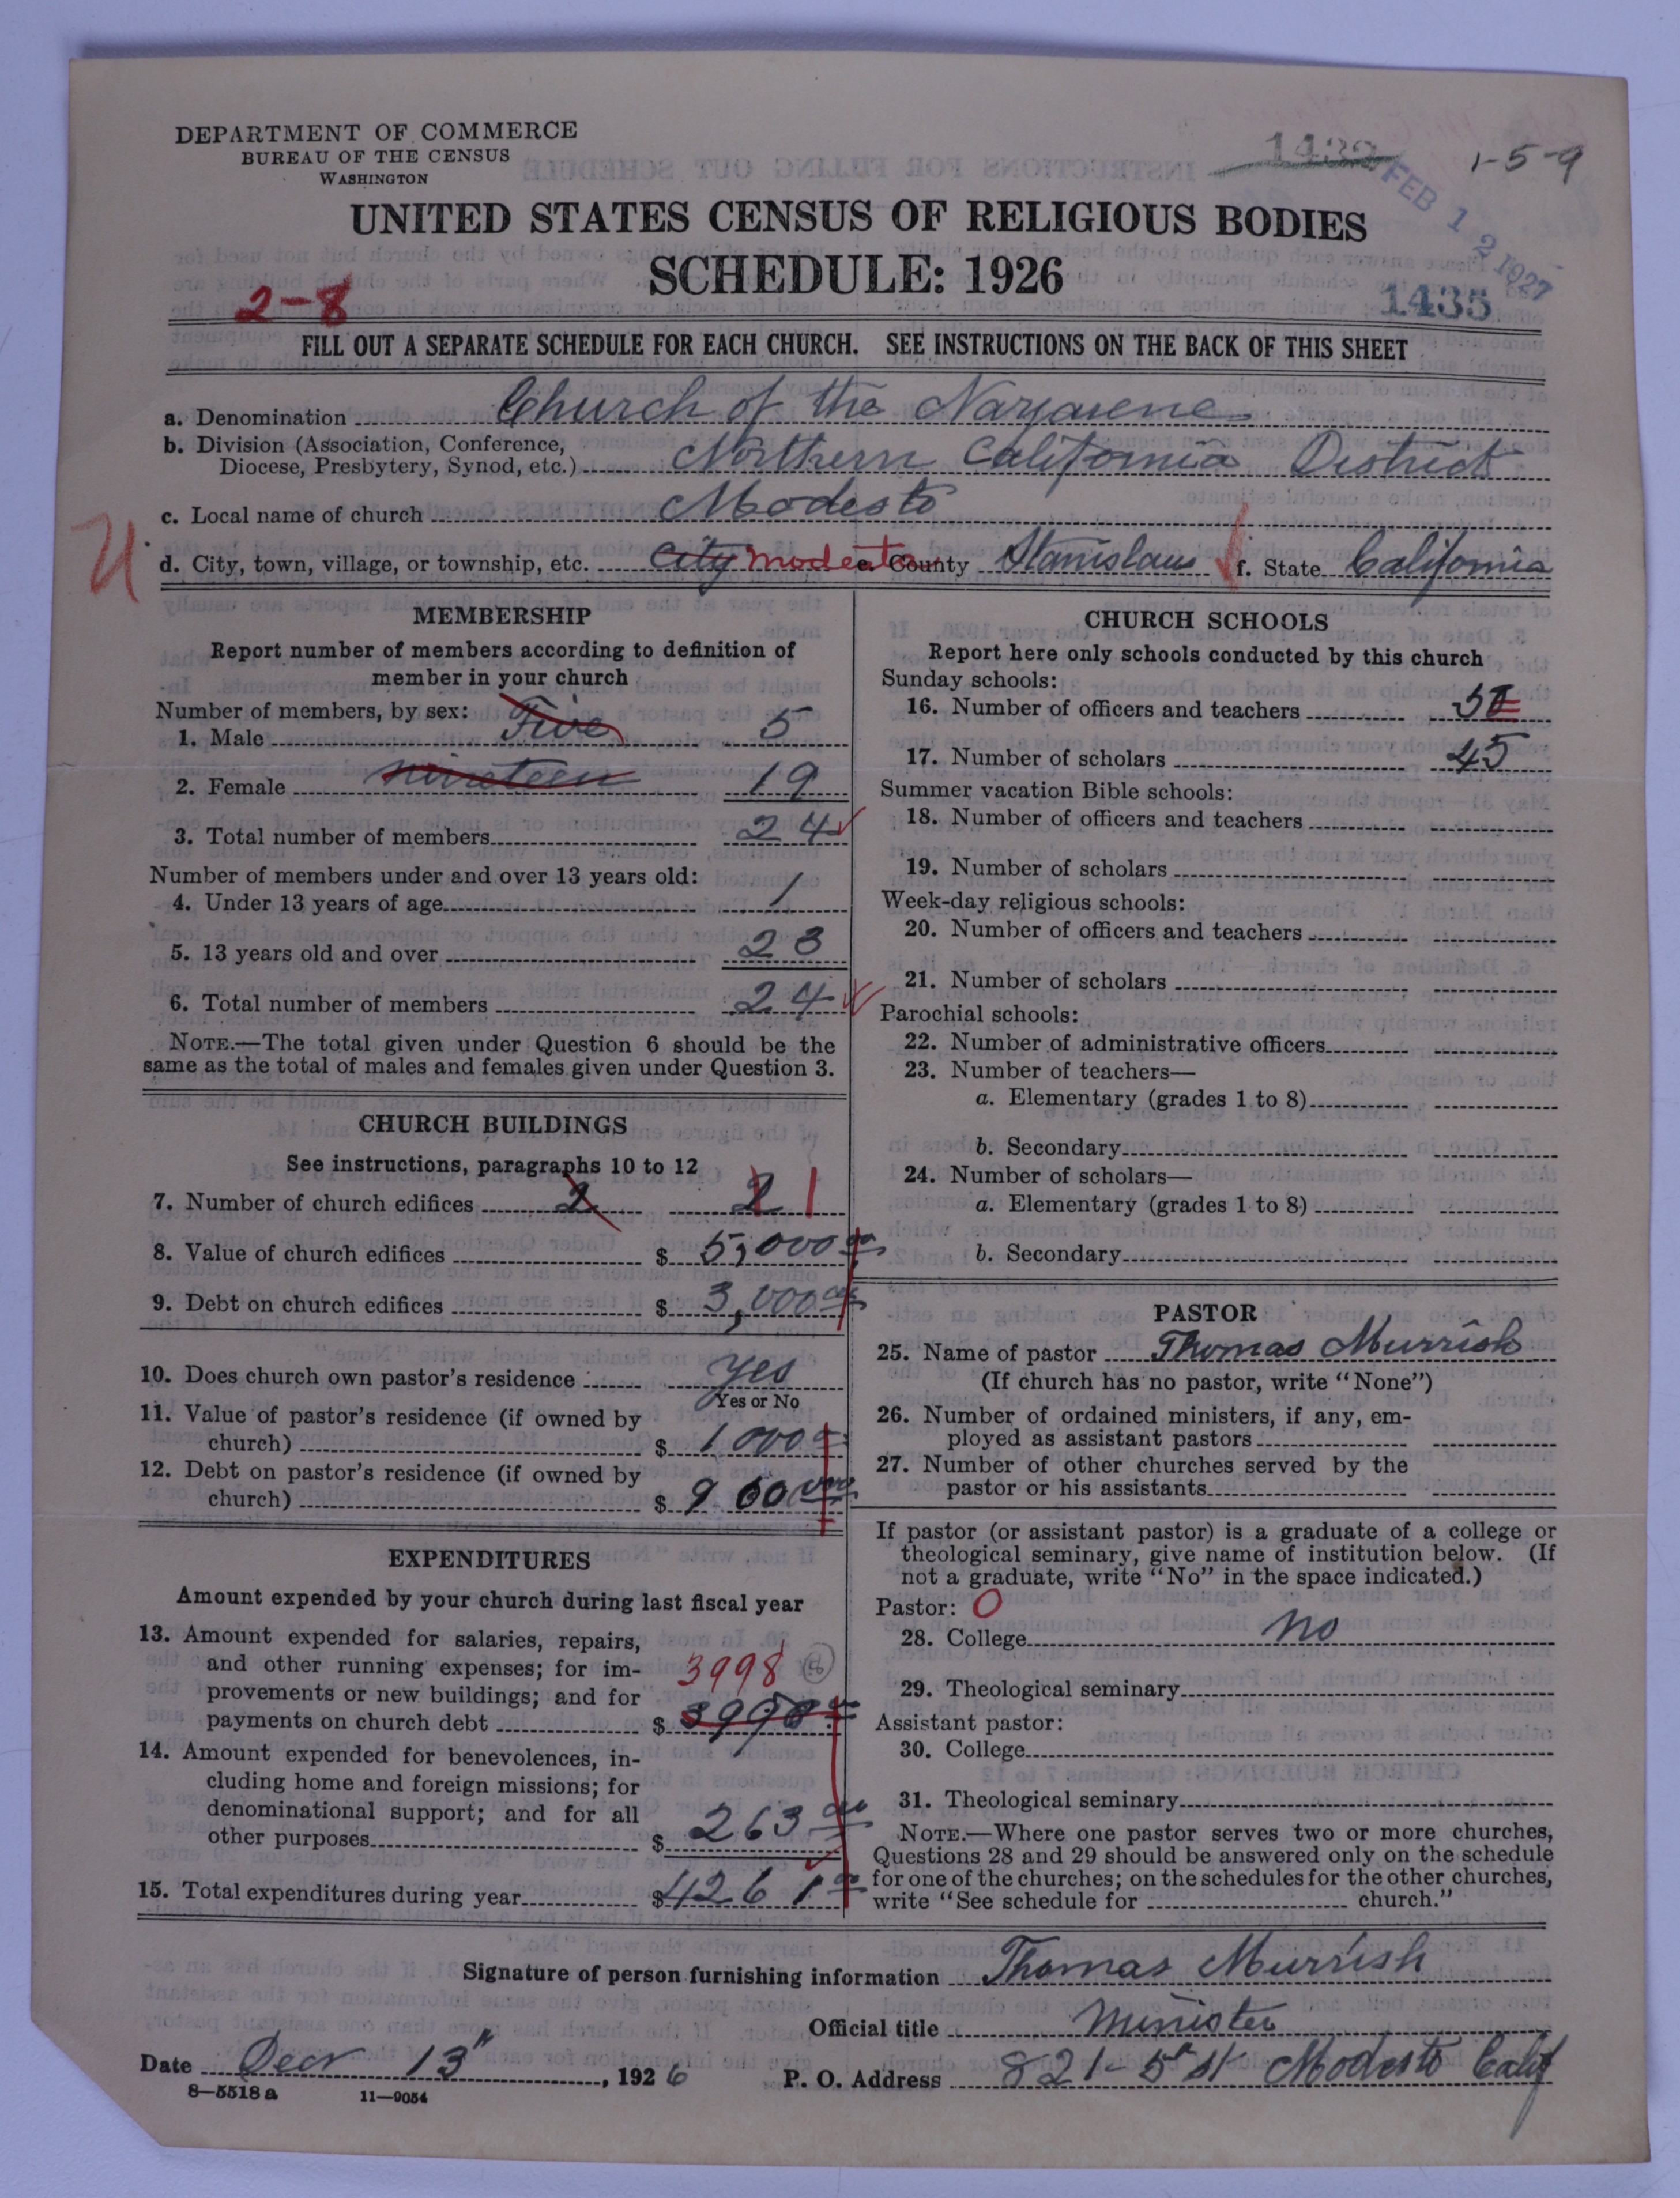 DEPARTMENT OF COMMERCE
BUREAU OF THE CENSUS
WASHINGTON
1-5-9
FEB 12 1927
UNITED STATES CENSUS OF RELIGIOUS BODIES
SCHEDULE: 1926
2-8
1435
FILL OUT A SEPARATE SCHEDULE FOR EACH CHURCH. SEE INSTRUCTIONS ON THE BACK OF THIS SHEET
a. Denomination Church of the Nazarene
b. Division (Association, Conference,
Diocese, Presbytery, Synod, etc.) Northern California District
c. Local name of church Modesto
d. City, town, village, or township, etc. City Modesto e. County Stanislaus f. State California
MEMBERSHIP
Report number of members according to definition of
member in your church
Number of members, by sex:
1. Male Five 5
2. Female nineteen 19
3. Total number of members 24
Number of members under and over 13 years old:
4. Under 13 years of age 1
5. 13 years old and over 23
6. Total number of members 24
NOTE.—The total given under Question 6 should be the
same as the total of males and females given under Question 3.
CHURCH BUILDINGS
See instructions, paragraphs 10 to 12
7. Number of church edifices 2 2 1
8. Value of church edifices $ 5,000 00
9. Debt on church edifices $ 3,000 00
10. Does church own pastor's residence yes
Yes or No
11. Value of pastor's residence (if owned by
church) $ 1000
12. Debt on pastor's residence (if owned by
church) $ 900
EXPENDITURES
Amount expended by your church during last fiscal year
13. Amount expended for salaries, repairs,
and other running expenses; for im-
provements or new buildings; and for
payments on church debt $ 3998
3998
14. Amount expended for benevolences, in-
cluding home and foreign missions; for
denominational support; and for all
other purposes $ 263 00
15. Total expenditures during year $ 4261
CHURCH SCHOOLS
Report here only schools conducted by this church
Sunday schools:
16. Number of officers and teachers
17. Number of scholars 45
Summer vacation Bible schools:
18. Number of officers and teachers
19. Number of scholars
Week-day religious schools:
20. Number of officers and teachers
21. Number of scholars
Parochial schools:
22. Number of administrative officers
23. Number of teachers—
a. Elementary (grades 1 to 8)
b. Secondary
24. Number of scholars—
a. Elementary (grades 1 to 8)
b. Secondary
PASTOR
25. Name of pastor Thomas Murrish
(If church has no pastor, write "None")
26. Number of ordained ministers, if any, em-
ployed as assistant pastors
27. Number of other churches served by the
pastor or his assistants
If pastor (or assistant pastor) is a graduate of a college or
theological seminary, give name of institution below. (If
not a graduate, write "No" in the space indicated.)
Pastor: O
28. College No
29. Theological seminary
Assistant pastor:
30. College
31. Theological seminary
NOTE.—Where one pastor serves two or more churches,
Questions 28 and 29 should be answered only on the schedule
for one of the churches; on the schedules for the other churches,
write "See schedule for church."
Signature of person furnishing information Thomas Murrish
Official title Minister
Date Decr 13", 1926 P. O. Address 821-5th St Modesto Calif
8—5518a 11—9054